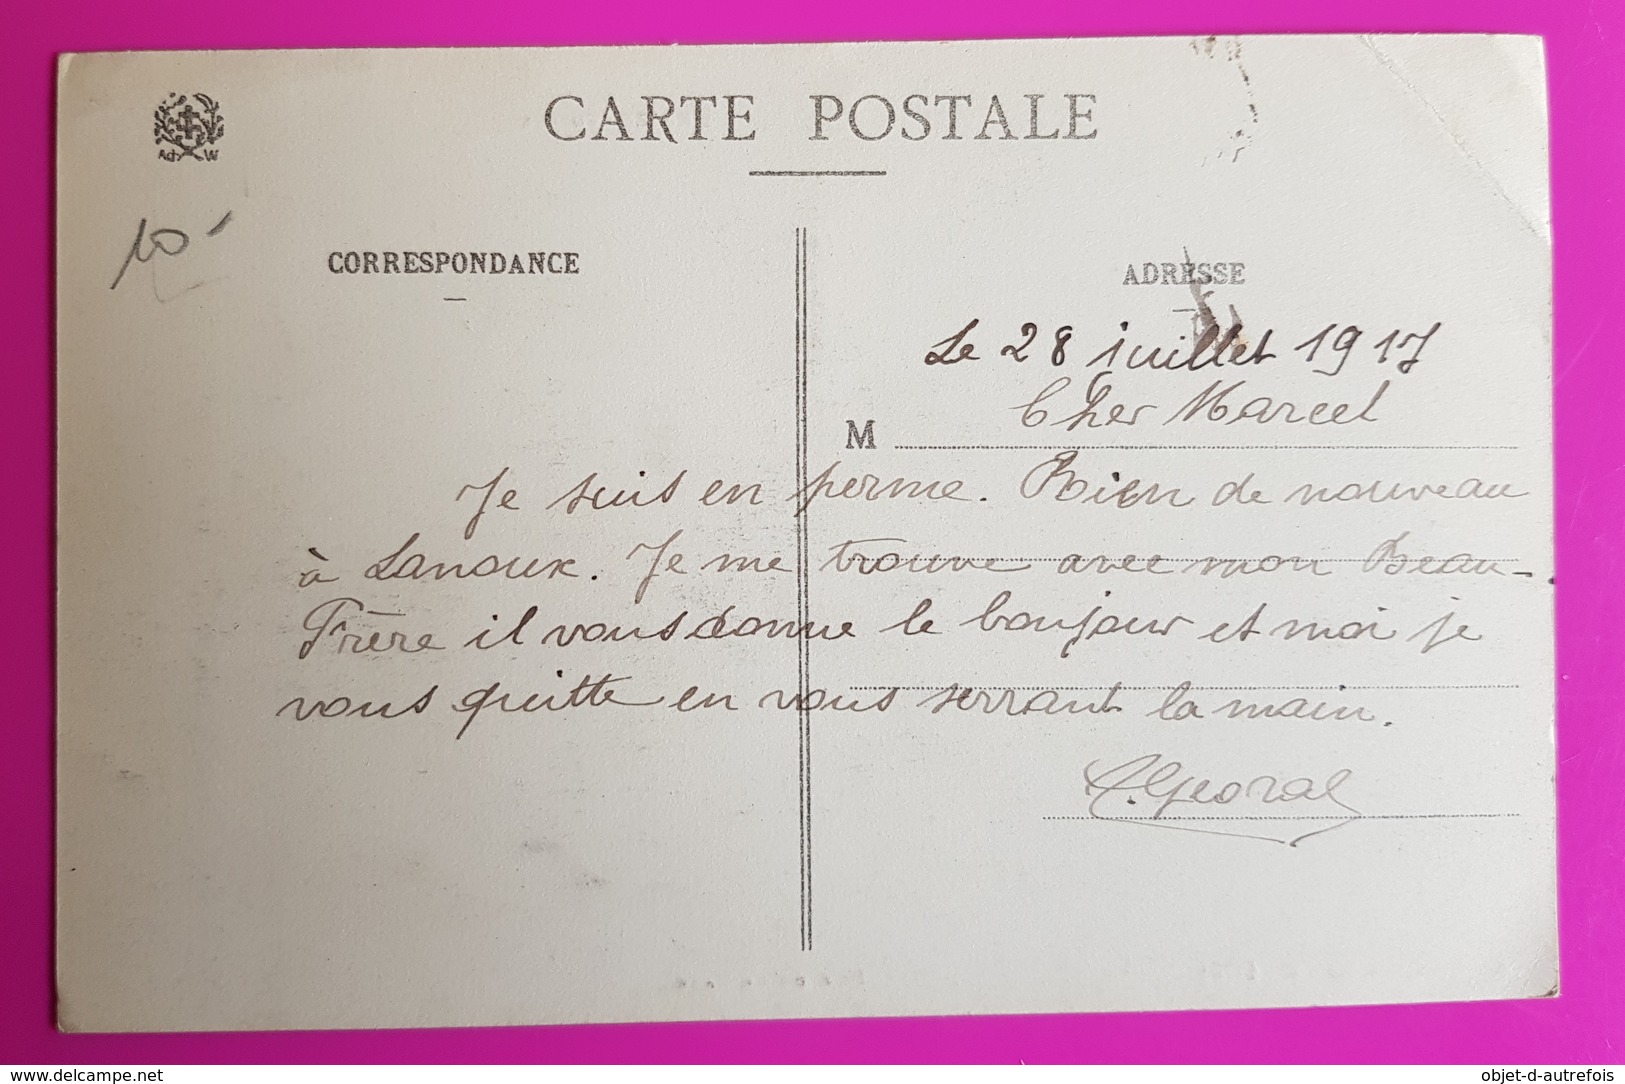 CARTE POSTALE
Ad W
10-
CORRESPONDANCE
ADRESSE
Le 28 juillet 1917
M Cher Marcel
Je suis en perme. Rien de nouveau
à Lanoux. Je me trouve avec mon Beau-
Frère il vous donne le bonjour et moi je
vous quitte en vous serrant la main.
www.delcampe.net
objet-d-autrefois